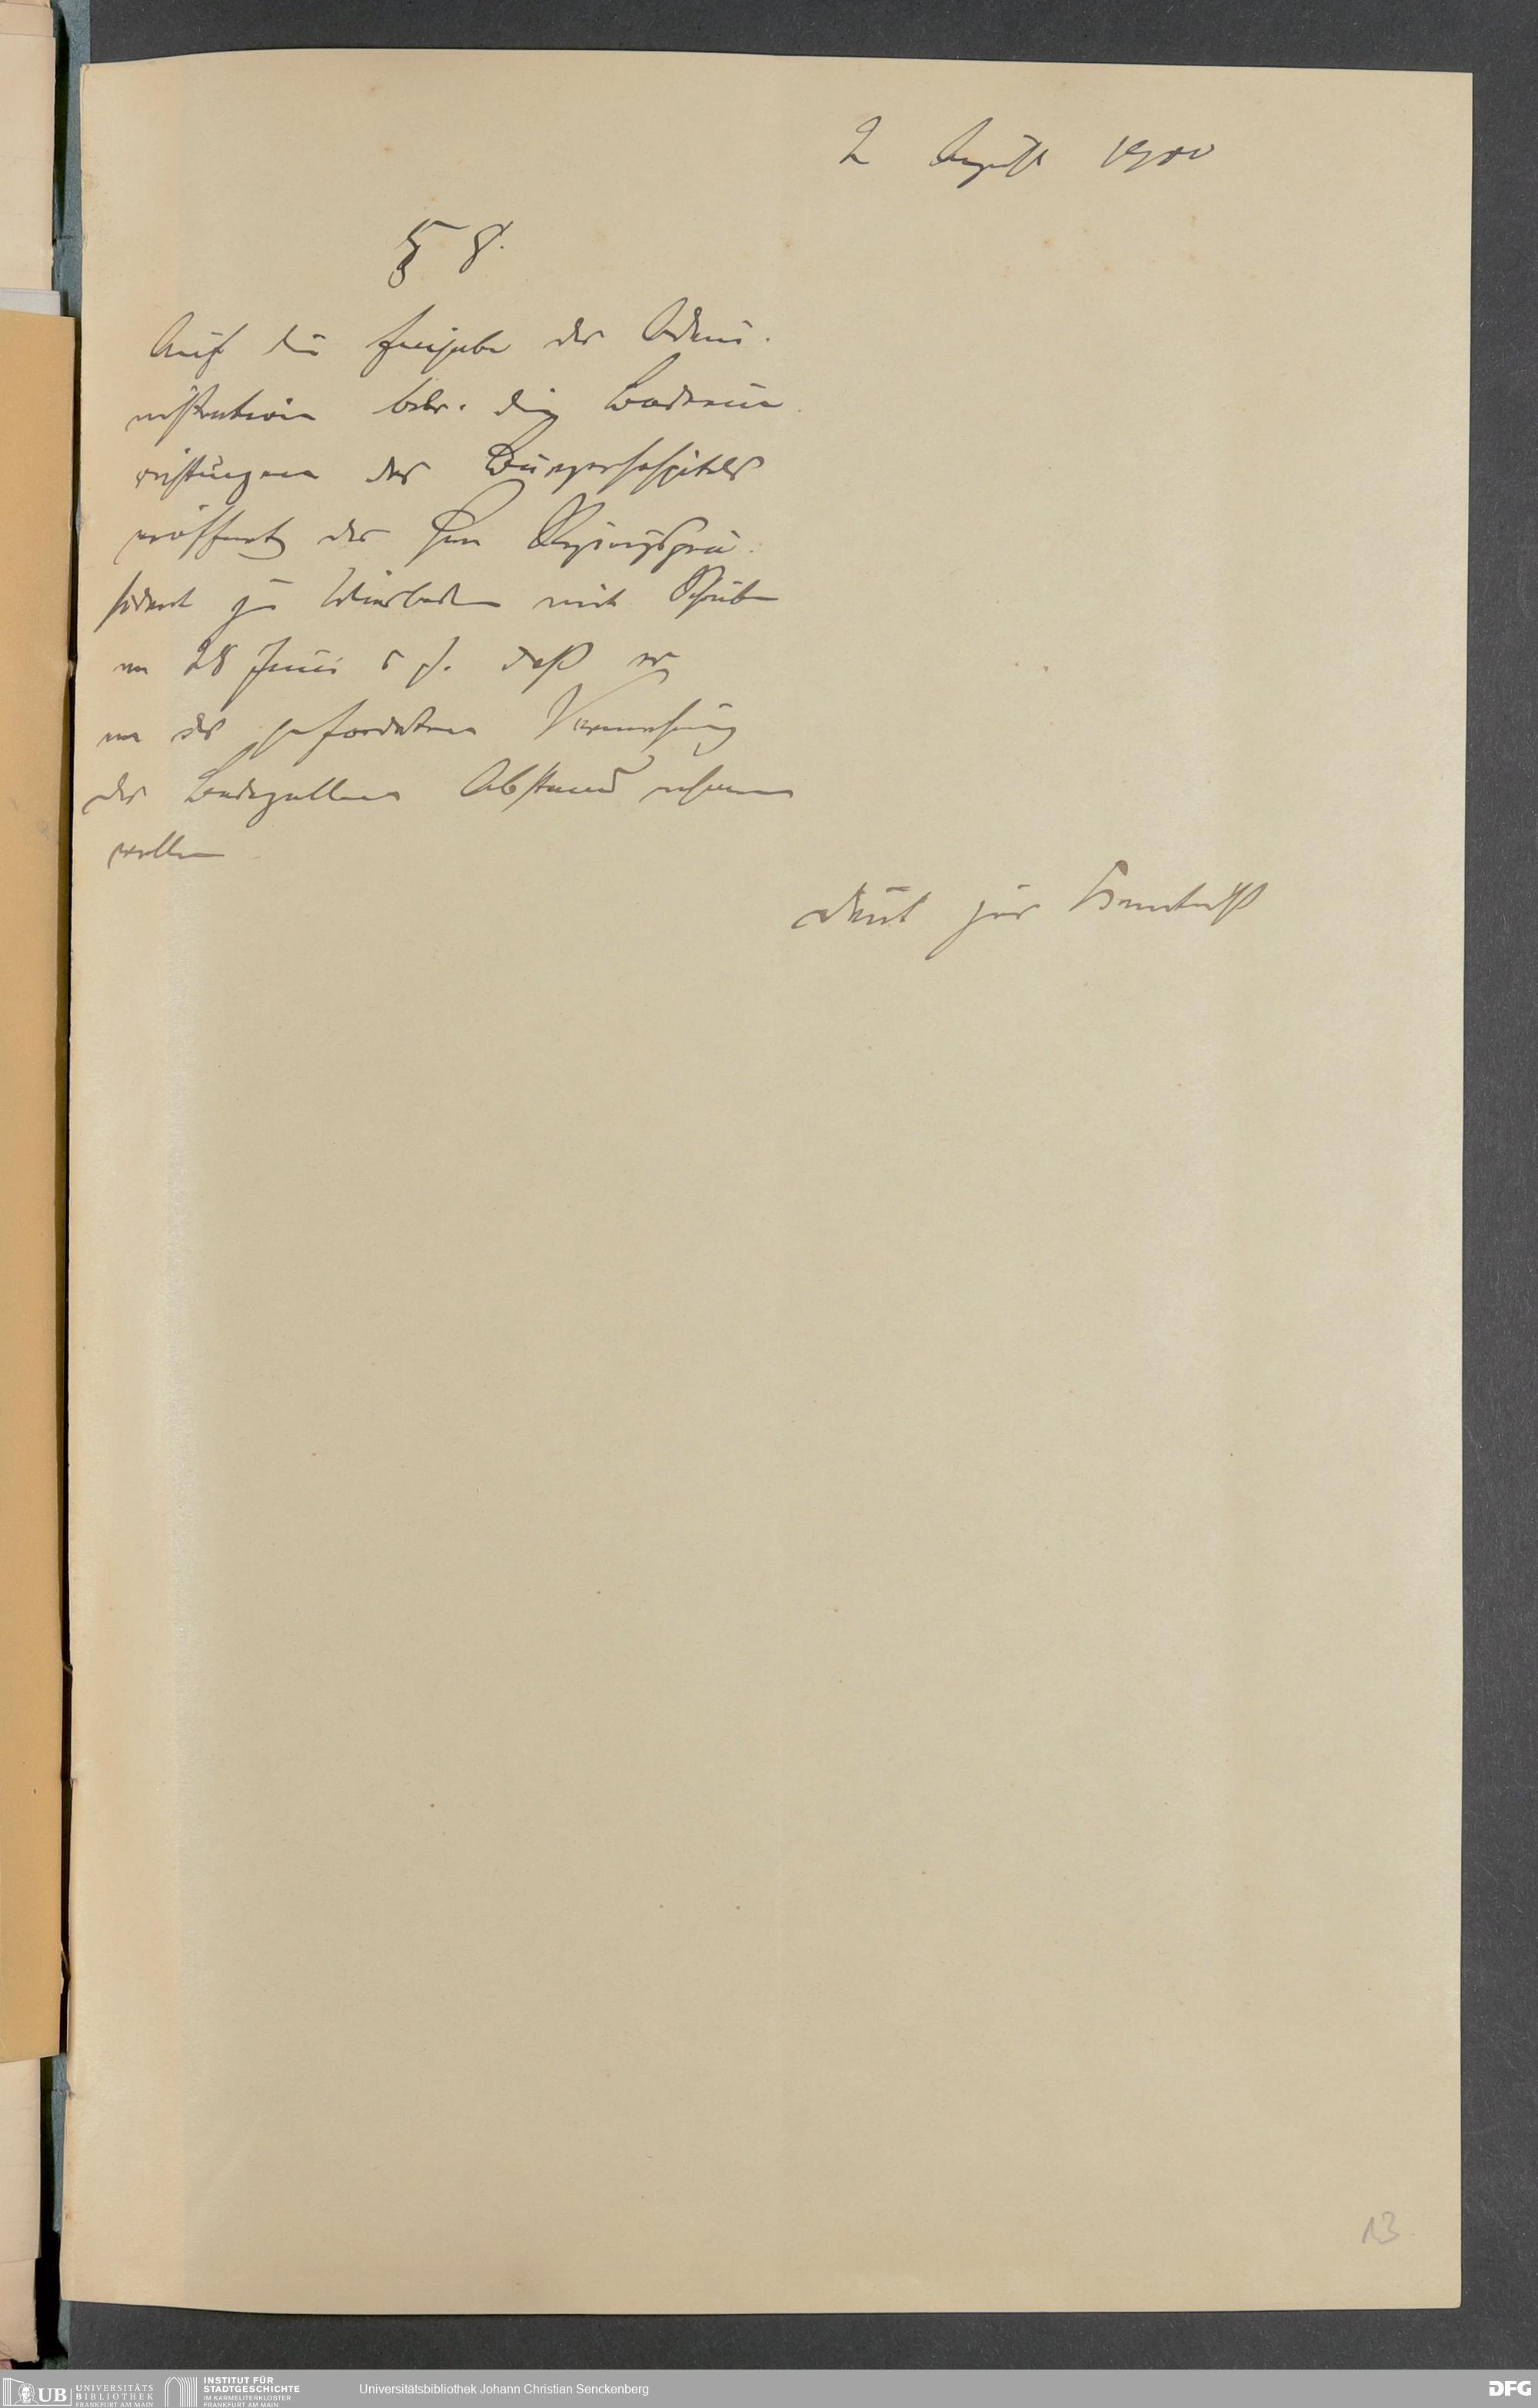 2 August 1900
§ 8.
Auf die Eingabe der Admi-
nistration betr. die Badeein-
richtungen des Bürgerhospitals
eröffnet der Herr Regierungsprä-
sident zu Wiesbaden mit Schreiben
vom 28 Juni d J. daß er
von der geforderten Vermehrung
der Badezellen Abstand nehmen
wolle
dient zur Kenntniß
13
UB UNIVERSITÄTS
BIBLIOTHEK
FRANKFURT AM MAIN
INSTITUT FÜR
STADTGESCHICHTE
IM KARMELITERKLOSTER
FRANKFURT AM MAIN
Universitätsbibliothek Johann Christian Senckenberg
DFG